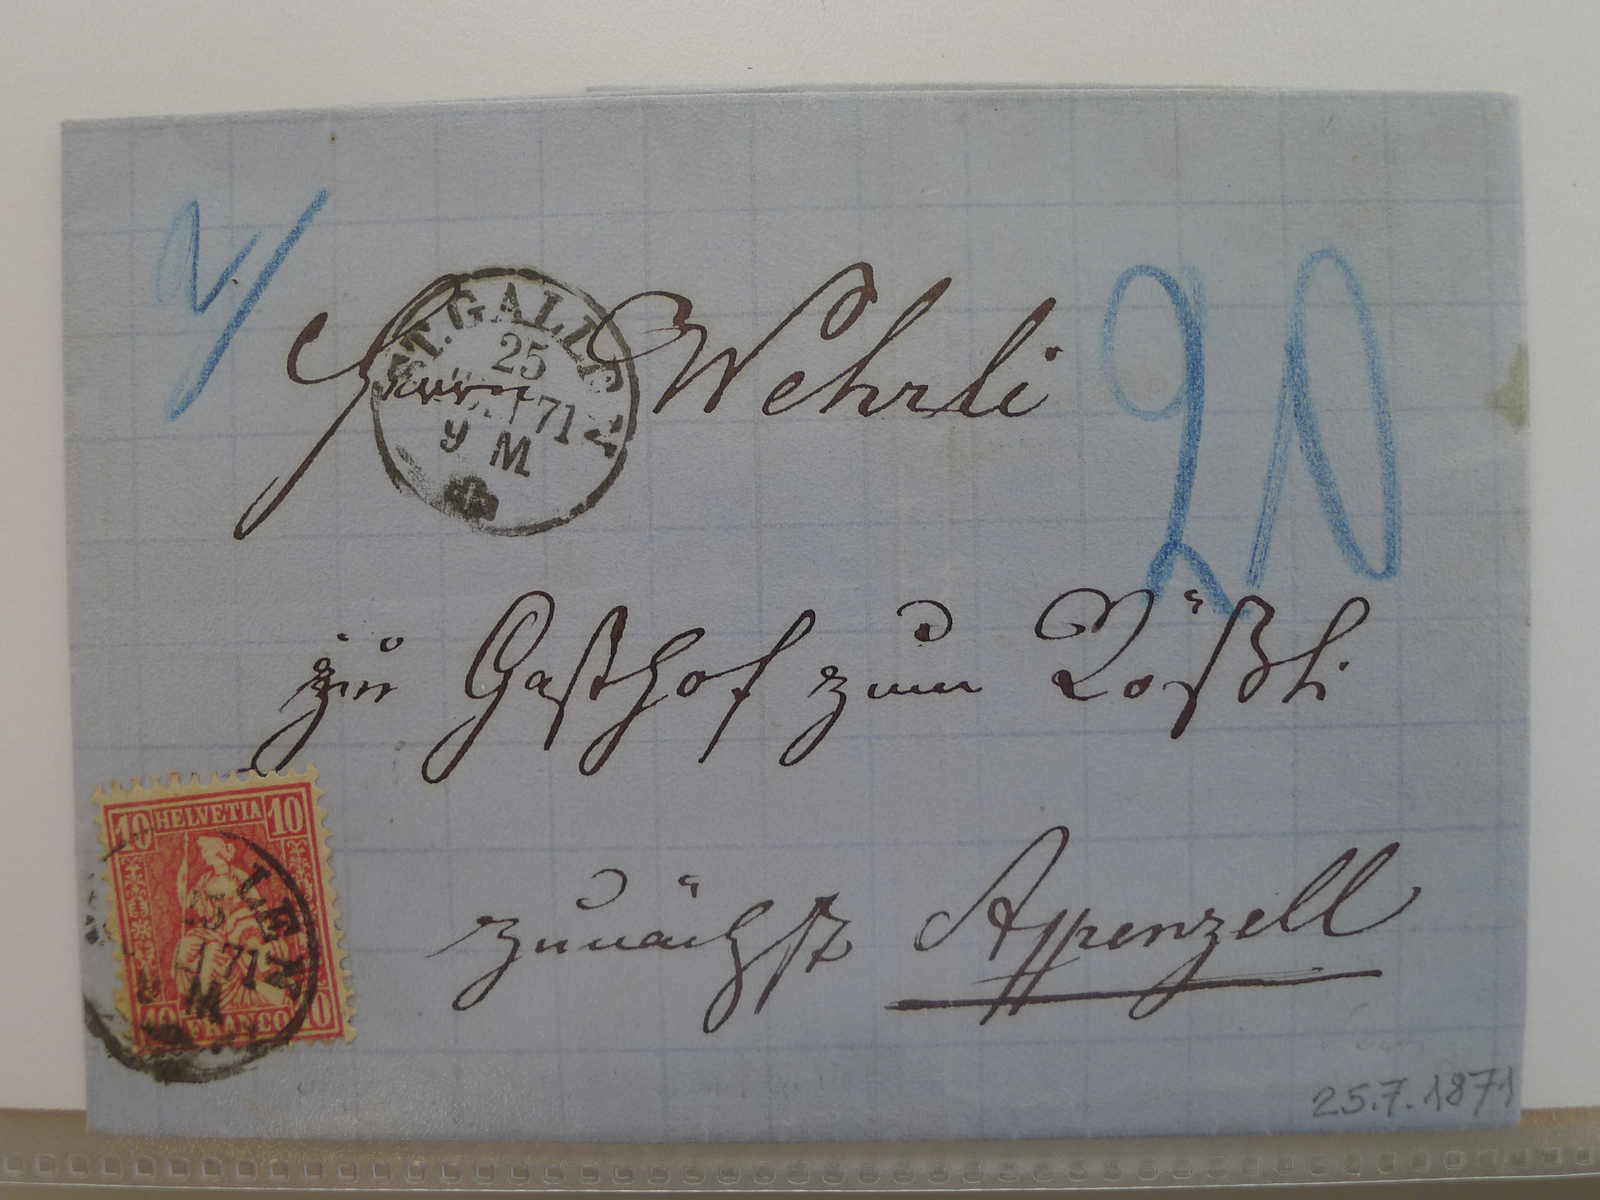 2/
ST. GALLEN
25
71
9 M
Herrn Wehrli
20
zur Gasthof zum Rößli
zunächst Appenzell
10 HELVETIA 10
10 FRANCO 10
LEN
25
71
M
25.7.1871